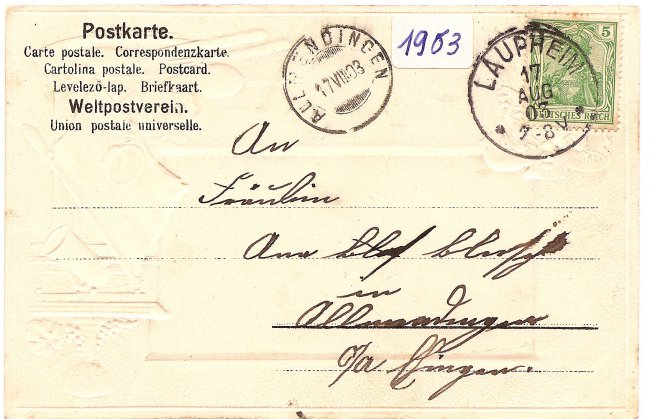 Postkarte.
Carte postale. Correspondenzkarte.
Cartolina postale. Postcard.
Levelező-lap. Briefkaart.
Weltpostverein.
Union postale universelle.
ALLMENDINGEN
17 VIII 03
1903
LAUPHEIM
17
AUG
03
7-8V
5
DEUTSCHES REICH
An
Fräulein
in
Allmendingen
O/A Ehingen.